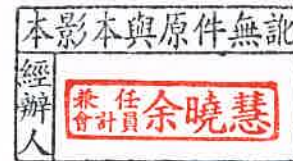 本影本與原件無訛
經辦人
兼任會計員余曉慧